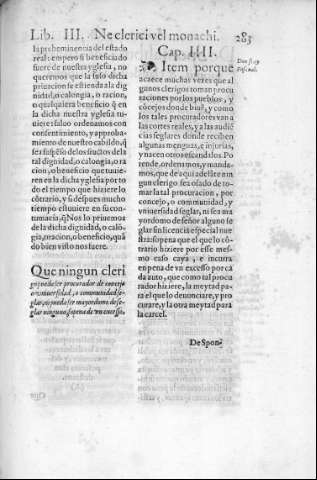 Lib. III. Ne clerici vel monachi. 285
la preheminencia del estado
real: empero si beneficiado
fuere de nuestra yglesia, no
queremos que la suso dicha
priuacion se estienda a la dig
nidad, o calongia, o racion,
o qualquiera beneficio q̃ en
la dicha nuestra yglesia tu-
uiere: saluo ordenamos con
sentimiento, y approba-
miento de nuestro cabildo, q̃
sea suspẽso de los fructos de la
tal dignidad, o calongia, o ra
cion, o beneficio que tuuie-
re en la dicha yglesia por to
do el tiempo que hiziere lo
cõtrario, y si despues mucho
tiempo estuuiere en su con-
tumacia, q̃ Nos lo priuemos
de la dicha dignidad, o calõ-
gia, oracion, o beneficio, quã
do bien visto nos fuere.
Que ningun cleri
go pueda ser procurador de concejo
o vniuersidad, o comunidad se-
glar, ni pueda ser mayordomo de se-
glar ninguno, so pena de vn excesso.
Cap. IIII.
Item porque
acaece muchas vezes que al
gunos clerigos toman procu
raciones por los pueblos, y
cõcejos donde biuẽ, y como
los tales procuradores van a
las cortes reales, y a las audiẽ
cias seglares donde reciben
algunas menguas, e injurias,
y nacen otros escandalos. Po
rende, ordenamos, y manda-
mos, que de aqui adelãte nin
gun clerigo sea osado de to-
mar la tal procuracion, por
concejo, o communidad, y
vniuersidad seglar, ni sea ma
yordomo de señor alguno se
glar sin licencia especial nue
stra so pena que el que lo cõ-
trario hiziere por esse mes-
mo caso caya, e incurra
en pena de vn excesso por ca
da auto, que como tal procu
rador hiziere, la meytad pa-
ra el que lo denunciare, y pro
curare, y la otra meytad para
la carcel.
De Spon-